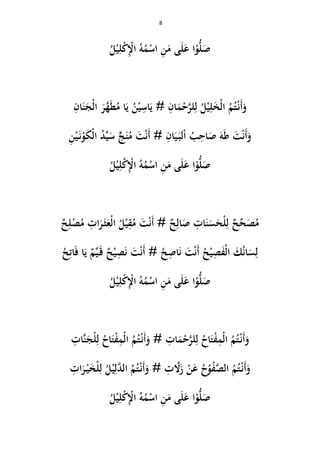 8
صَلُّوْا عَلَى مَنِ اسْمُهُ الْإِكْلِيْلُ
وَأَنْتُمُ الْخَلِيْلُ لِلرَّحْمَانِ # يَاسِيْنُ يَا مُطَهَّرَ الْجَنَانِ
أَنْتَ طَهَ صَاحِبُ الْبَيَانِ # أَنْتَ مُنَجٍّ سَيِّدُ الْكَوْنَيْنِ
صَلُّوْا عَلَى مَنِ اسْمُهُ الْإِكْلِيْلُ
مُصَحِّحٌ لِلْحَسَنَاتِ صَالِحٌ # أَنْتَ مُقِيْلُ الْعَثَرَاتِ مُصْلِحٌ
لِسَانُكَ الْفَصِيْحُ أَنْتَ نَاصِحْ # أَنْتَ نَصِيْحٌ قَيِّمٌ يَا فَاتِحُ
صَلُّوْا عَلَى مَنِ اسْمُهُ الْإِكْلِيْلُ
وَأَنْتُمُ الْمِفْتَاحُ لِلرَّحْمَاتِ # وَأَنْتُمُ الْمِفْتَاحُ لِلْجَنَّاتِ
وَأَنْتُمُ الصَّفُوْحُ عَنْ زَلَّاتِ # وَأَنْتُمُ الدَّلِيْلُ لِلْخَيْرَاتِ
صَلُّوْا عَلَى مَنِ اسْمُهُ الْإِكْلِيْلُ